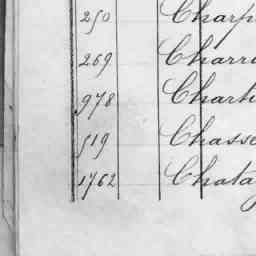 250 Charp
269 Charr
978 Charti
519 Chasse
1762 Chata